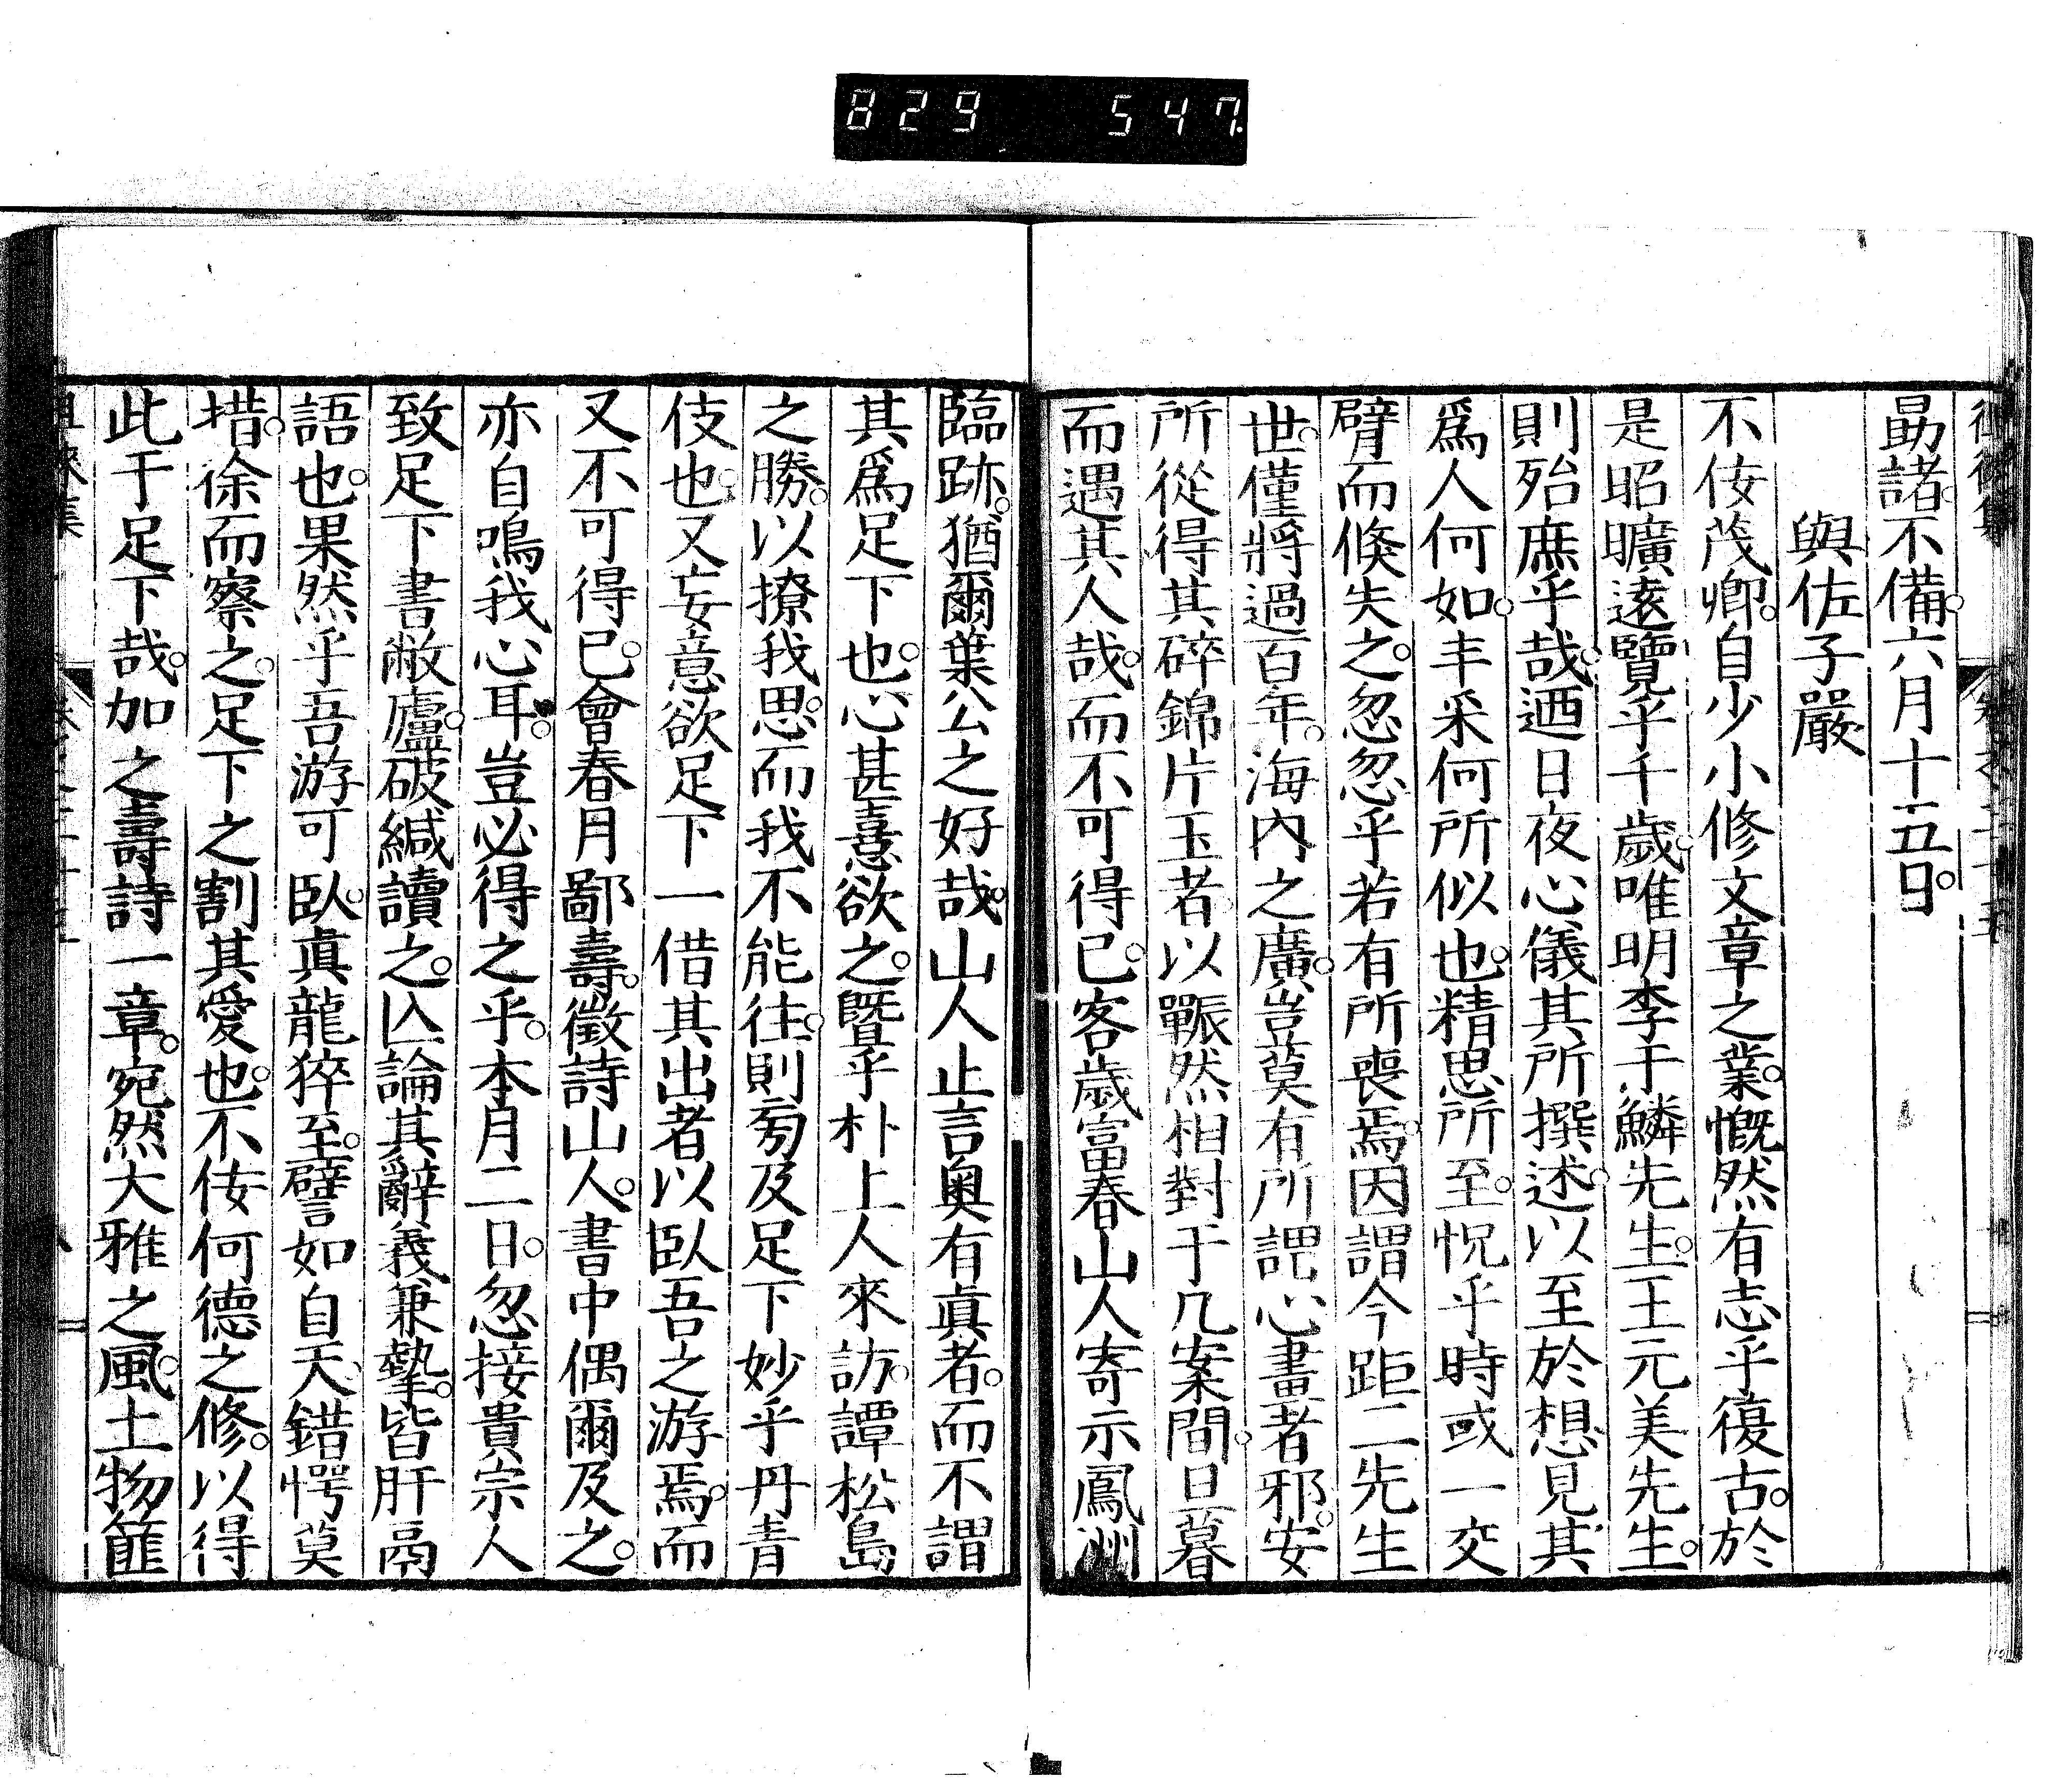 829 547
勗諸。不備。六月十五日。
與佐子嚴
不佞茂卿。自少小修文章之業。慨然有志乎復古。於
是昭曠遠覽乎千歲。唯明李于鱗先生。王元美先生。
則殆庶乎哉。迺日夜心儀其所撰述。以至於想見其
爲人何如。丰采何所似也。精思所至。怳乎時或一交
臂而倏失之。忽忽乎若有所喪焉。因謂今距二先生
世。僅將過百年。海內之廣。豈莫有所謂心畫者邪。安
所從得其碎錦片玉者。以囅然相對于几案間。旦暮
而遇其人哉。而不可得已。客歲富春山人寄示鳳洲
臨跡。猶爾葉公之好哉。山人止言奧有眞者。而不謂
其爲足下也。心甚憙欲之。曁乎朴上人來訪。譚松島
之勝。以撩我思。而我不能往。則匆及足下妙乎丹青
伎也。又妄意欲足下一借其出者以臥吾之游焉。而
又不可得已。會春月鄙壽。徵詩山人。書中偶爾及之。
亦自鳴我心耳。豈必得之乎。本月二日。忽接貴宗人
致足下書敝廬。破緘讀之。亾論其辭義兼摯。皆肝鬲
語也。果然乎吾游可臥。眞龍猝至。譬如自天、錯愕莫
措。徐而察之。足下之割其愛也。不佞何德之修。以得
此于足下哉。加之壽詩一章。宛然大雅之風。土物篚
徂徠集